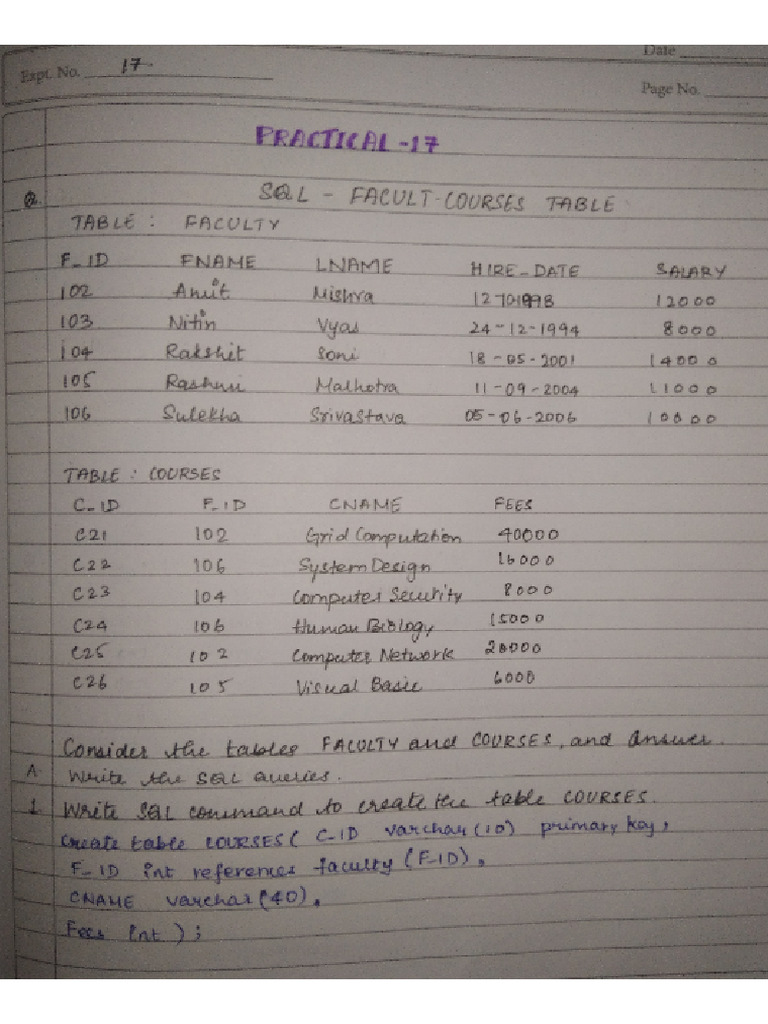 Date
Expt. No. 17
Page No.
PRACTICAL -17
Q. SQL - FACULT-COURSES TABLE
TABLE : FACULTY
F_ID FNAME LNAME HIRE_DATE SALARY
102 Amit Mishra 12000
103 Nitin Vyas 24-12-1994 8000
104 Rakshit Soni 18-05-2001 14000
105 Rashmi Malhotra 11-09-2004 11000
106 Sulekha Srivastava 05-06-2006 10000
TABLE : COURSES
C_ID F_ID CNAME FEES
C21 102 Grid Computation 40000
C22 106 System Design 16000
C23 104 Computer Security 8000
C24 106 Human Biology 15000
C25 102 Computer Network 20000
C26 105 Visual Basic 6000
Consider the tables FACULTY and COURSES, and Answer.
A. Write the SQL queries.
1. Write SQL command to create the table COURSES.
Create table COURSES( C-ID varchar(10) primary key,
F_ID int references faculty (F-ID),
CNAME varchar(40),
Fees int );